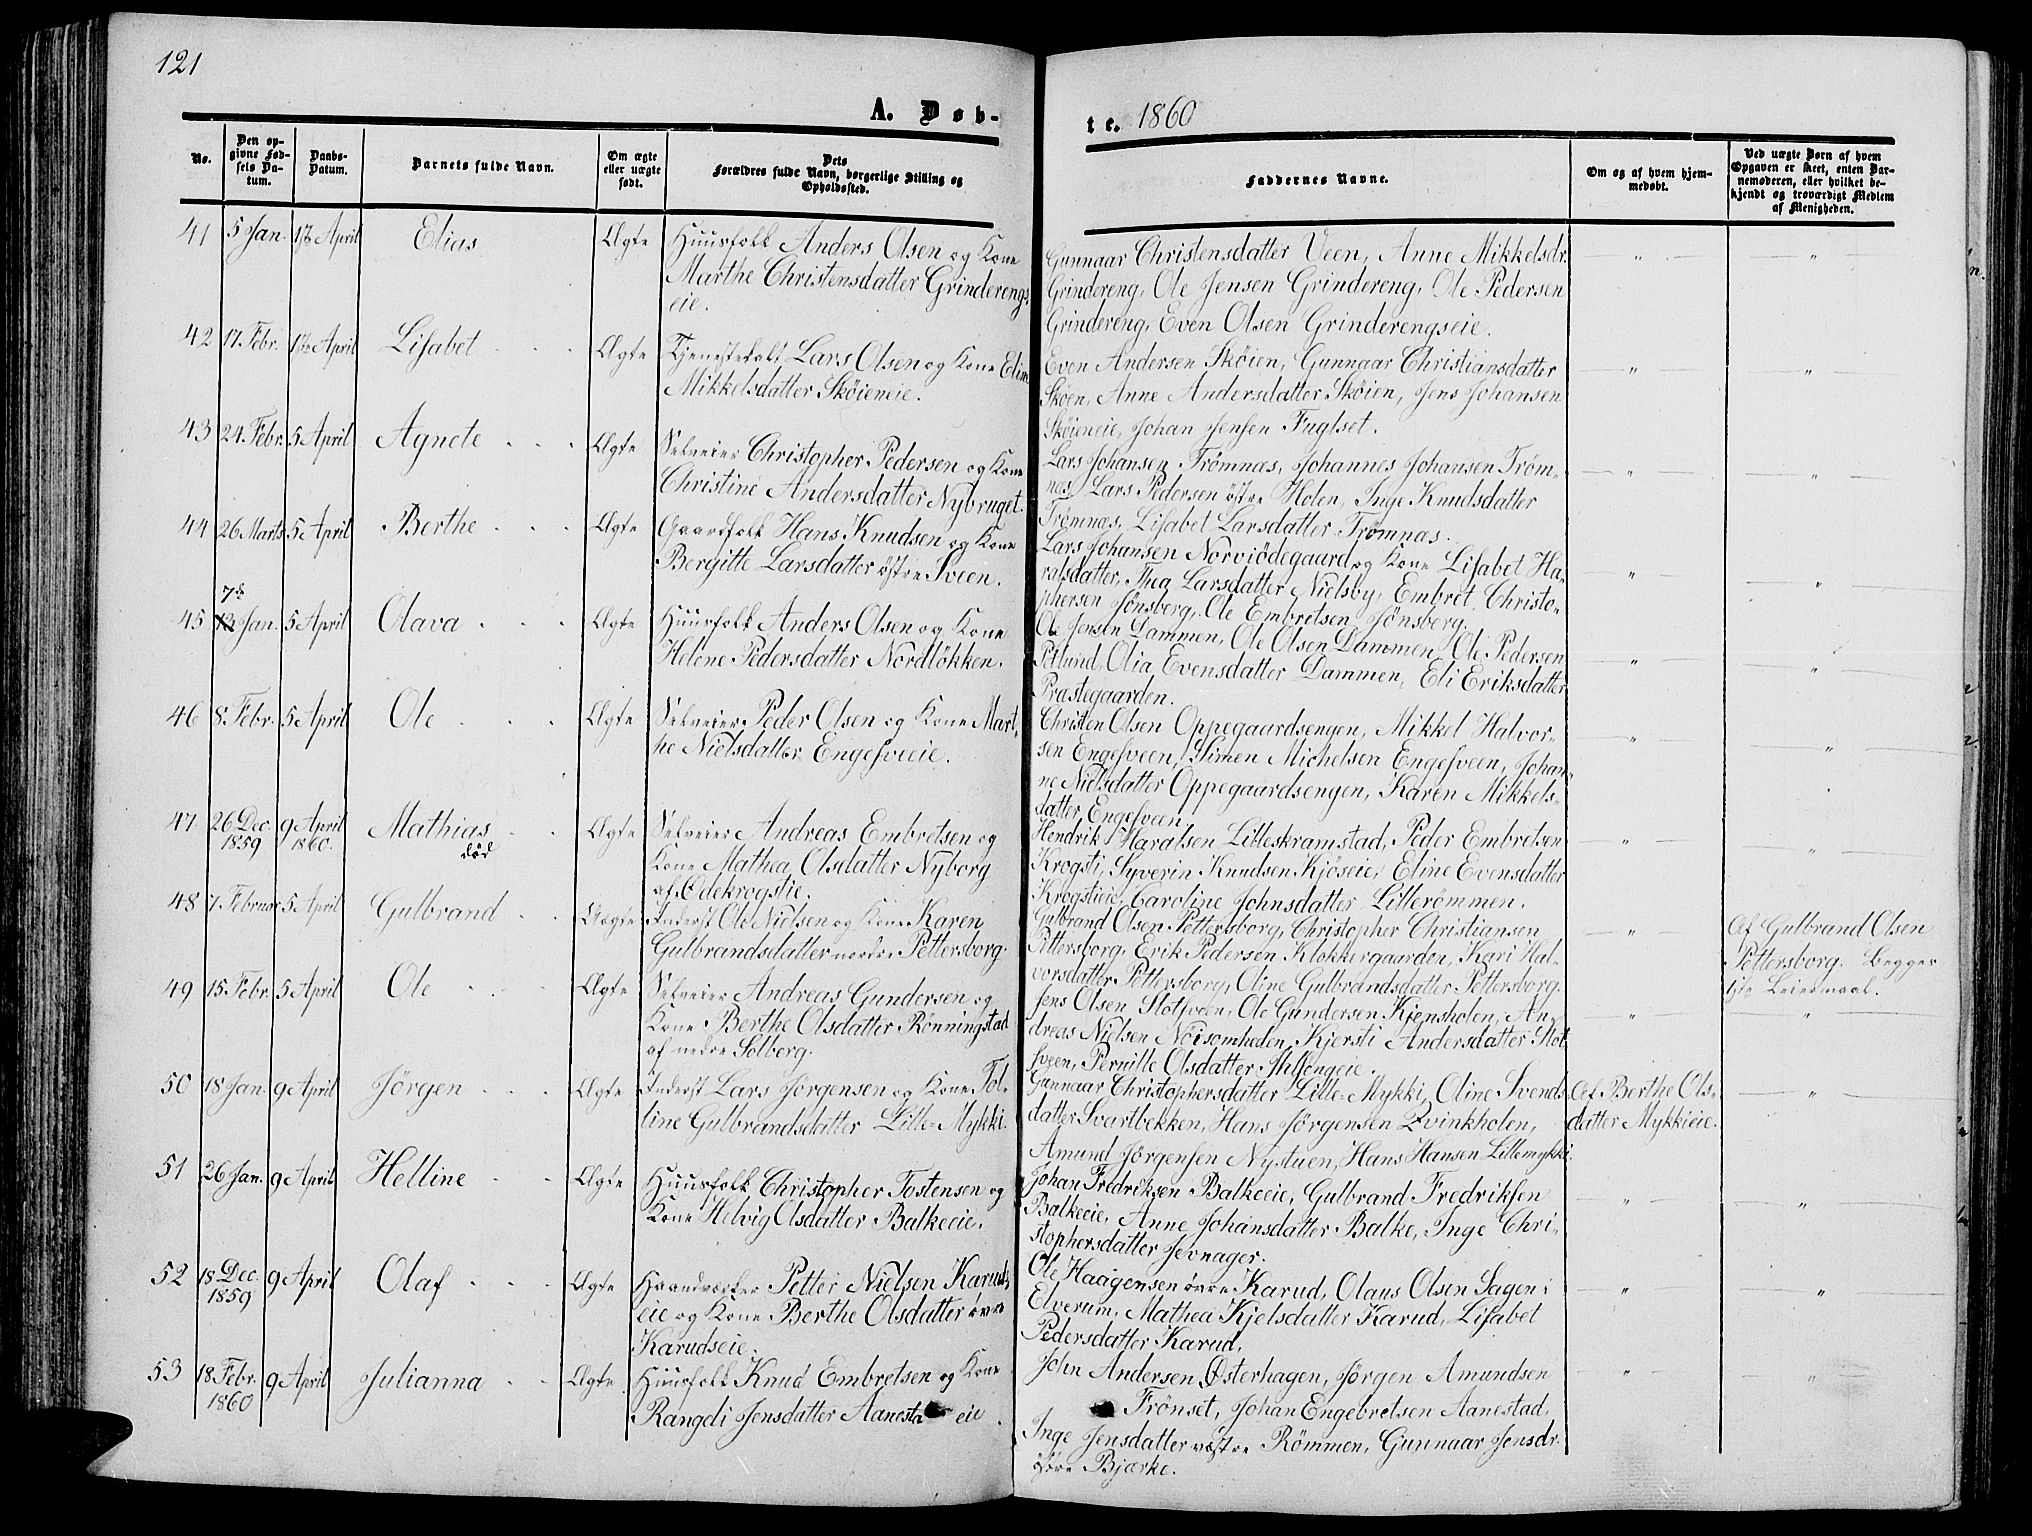 121
A. Døb-
te. 1860
No.
Den op-
givne Fød-
sels Da-
tum.
Daabs-
Datum.
Barnets fulde Navn.
Om ægte
eller uægte
født.
Dets
Forældres fulde Navn, borgerlige Stilling og
Opholdssted.
Faddernes Navne.
Om og af hvem hjem-
medøbt.
Ved uægte Børn af hvem
Opgaven er skeet, enten Bar-
nemoderen, eller hvilket be-
kjendt og troværdigt Medlem
af Menigheden.
41 5 Jan. 1ste April Elias Ægte Huusfolk Anders Olsen og Kone
Marthe Christensdatter Grinderengs
eie.
Gunnaar Christensdatter Veen, Anne Mikkelsdr.
Grindereng, Ole Jensen Grindereng, Ole Pedersen
Grindereng, Even Olsen Grinderengseie.
— " — — " —
42 17. Febr. 1ste April Lisabet Ægte Tjenestekarl Lars Olsen og Kone Eline
Mikkelsdatter Skøieneie.
Even Andersen Skøien, Gunnaar Christiansdatter
Skøen, Anne Andersdatter Skøien, Jens Johansen
Skøieneie, Johan Jensen Fuglset.
— " — — " —
43 24. Febr. 5 April Agnete Ægte Selveier Christopher Pedersen og Kone
Christine Andersdatter Nybruget.
Lars Johansen Trømnæs, Johannes Johansen Trøm-
næs, Lars Pedersen østre Holen, Inge Knudsdatter
Trømnæs, Lisabet Larsdatter Trømnæs.
— " — — " —
44 26 Marts 5 April Berthe Ægte Gaardfolk Hans Knudsen og Kone
Bergitte Larsdatter østre Sveen.
Lars Johansen Norviødegaard og Kone Lisabet Ha-
ralsdatter, Thea Larsdatter Nielsby, Embret Christo-
phersen Jønsberg, Ole Embretsen Jønsberg.
— " — — " —
7de
45 13 Jan. 5 April Olava Ægte Huusfolk Anders Olsen og Kone
Helene Pedersdatter Nordløkken.
Ole Jensen Dammen, Ole Olsen Dammen, Ole Pedersen
Potlund, Olia Evensdatter Dammen, Eli Eriksdatter
Præstegaarden.
— " — — " —
46 8. Febr. 5 April Ole Ægte Selveier Peder Olsen og Kone Mart-
he Nielsdatter Engesveeie.
Christen Olsen Oppegaardsengen, Mikkel Halvor-
sen Engesveen, Simen Michelsen Engesveen, Johan-
ne Nielsdatter Oppegaardsengen, Karen Mikkels-
datter Engesveen.
— " — — " —
47 26 Dec. 1859 9 April 1860. Mathias Ægte Selveier Andreas Embretsen og
død
Kone Mathea Olsdatter Nyborg
af Ødekrogstie.
Hendrik Haralsen Lilleskramstad, Peder Embretsen
Krogsti, Syverin Knudsen Kjøseie, Eline Evensdatter
Krogstieie, Caroline Johnsdatter Lillerømmen.
— " — — " —
48 7 Februar 5 April Gulbrand Uægte Inderst Ole Nielsen og Kone Karen
Gulbrandsdatter nordre Pettersborg.
Gulbrand Olsen Pettersborg, Christopher Christiansen
Pettersborg, Erik Pedersen Klokkergaarden, Kari Hal-
vorsdatter Pettersborg, Oline Gulbrandsdatter Pettersborg.
— " —
Af Gulbrand Olsen
Pettersborg. Begges
1ste Leiermaal.
49 15. Febr. 5 April Ole Ægte Selveier Andreas Gundersen og
Kone Berthe Olsdatter Rønningstad
af nedre Solberg.
Jens Olsen Slotsveen, Ole Gundersen Kjensholen, An-
dreas Nielsen Nøisomheden, Kjersti Andersdatter Slot-
sveen, Pernille Olsdatter
— " — — " —
50 18 Jan. 9 April Jørgen Ægte Inderst Lars Jørgensen og Kone Tol-
line Gulbrandsdatter Lille-Mykki.
Gunnaar Christophersdatter Lille-Mykki, Oline Svends-
datter Svartbekken, Hans Jørgensen Kvinkholen,
Amund Jørgensen Nystuen, Hans Hansen Lillemykki.
Af Berthe Ols-
datter Mykkieie.
— " —
51 26 Jan. 9 April Helline Ægte Huusfolk Christopher Tostensen og
Kone Helvig Olsdatter Balkeeie.
Johan Fredriksen Balkeeie, Gulbrand Fredriksen
Balkeeie, Anne Johansdatter Balke, Inge Chri-
stophersdatter Jevnager.
— " — — " —
52 18 Dec. 1859 9 April Olaf Ægte Haandværker Petter Nielsen Karuds
eie og Kone Berthe Olsdatter øvre
Karudseie.
Ole Haagensen øvre Karud, Olaus Olsen Sagen i
Elverum, Mathea Kjelsdatter Karud, Lisabet
Pedersdatter Karud.
— " — — " —
53 18 Febr. 1860 9 April Julianna Ægte Huusfolk Knud Embretsen og Kone
Rangdi Jensdatter Aanesta eie.
John Andersen Østerhagen, Jørgen Amundsen
Frønset, Johan Engebretsen Aanestad,
Inge Jensdatter vestre Rømmen, Gunnaar Jensdr.
Bjærke.
— " — — " —